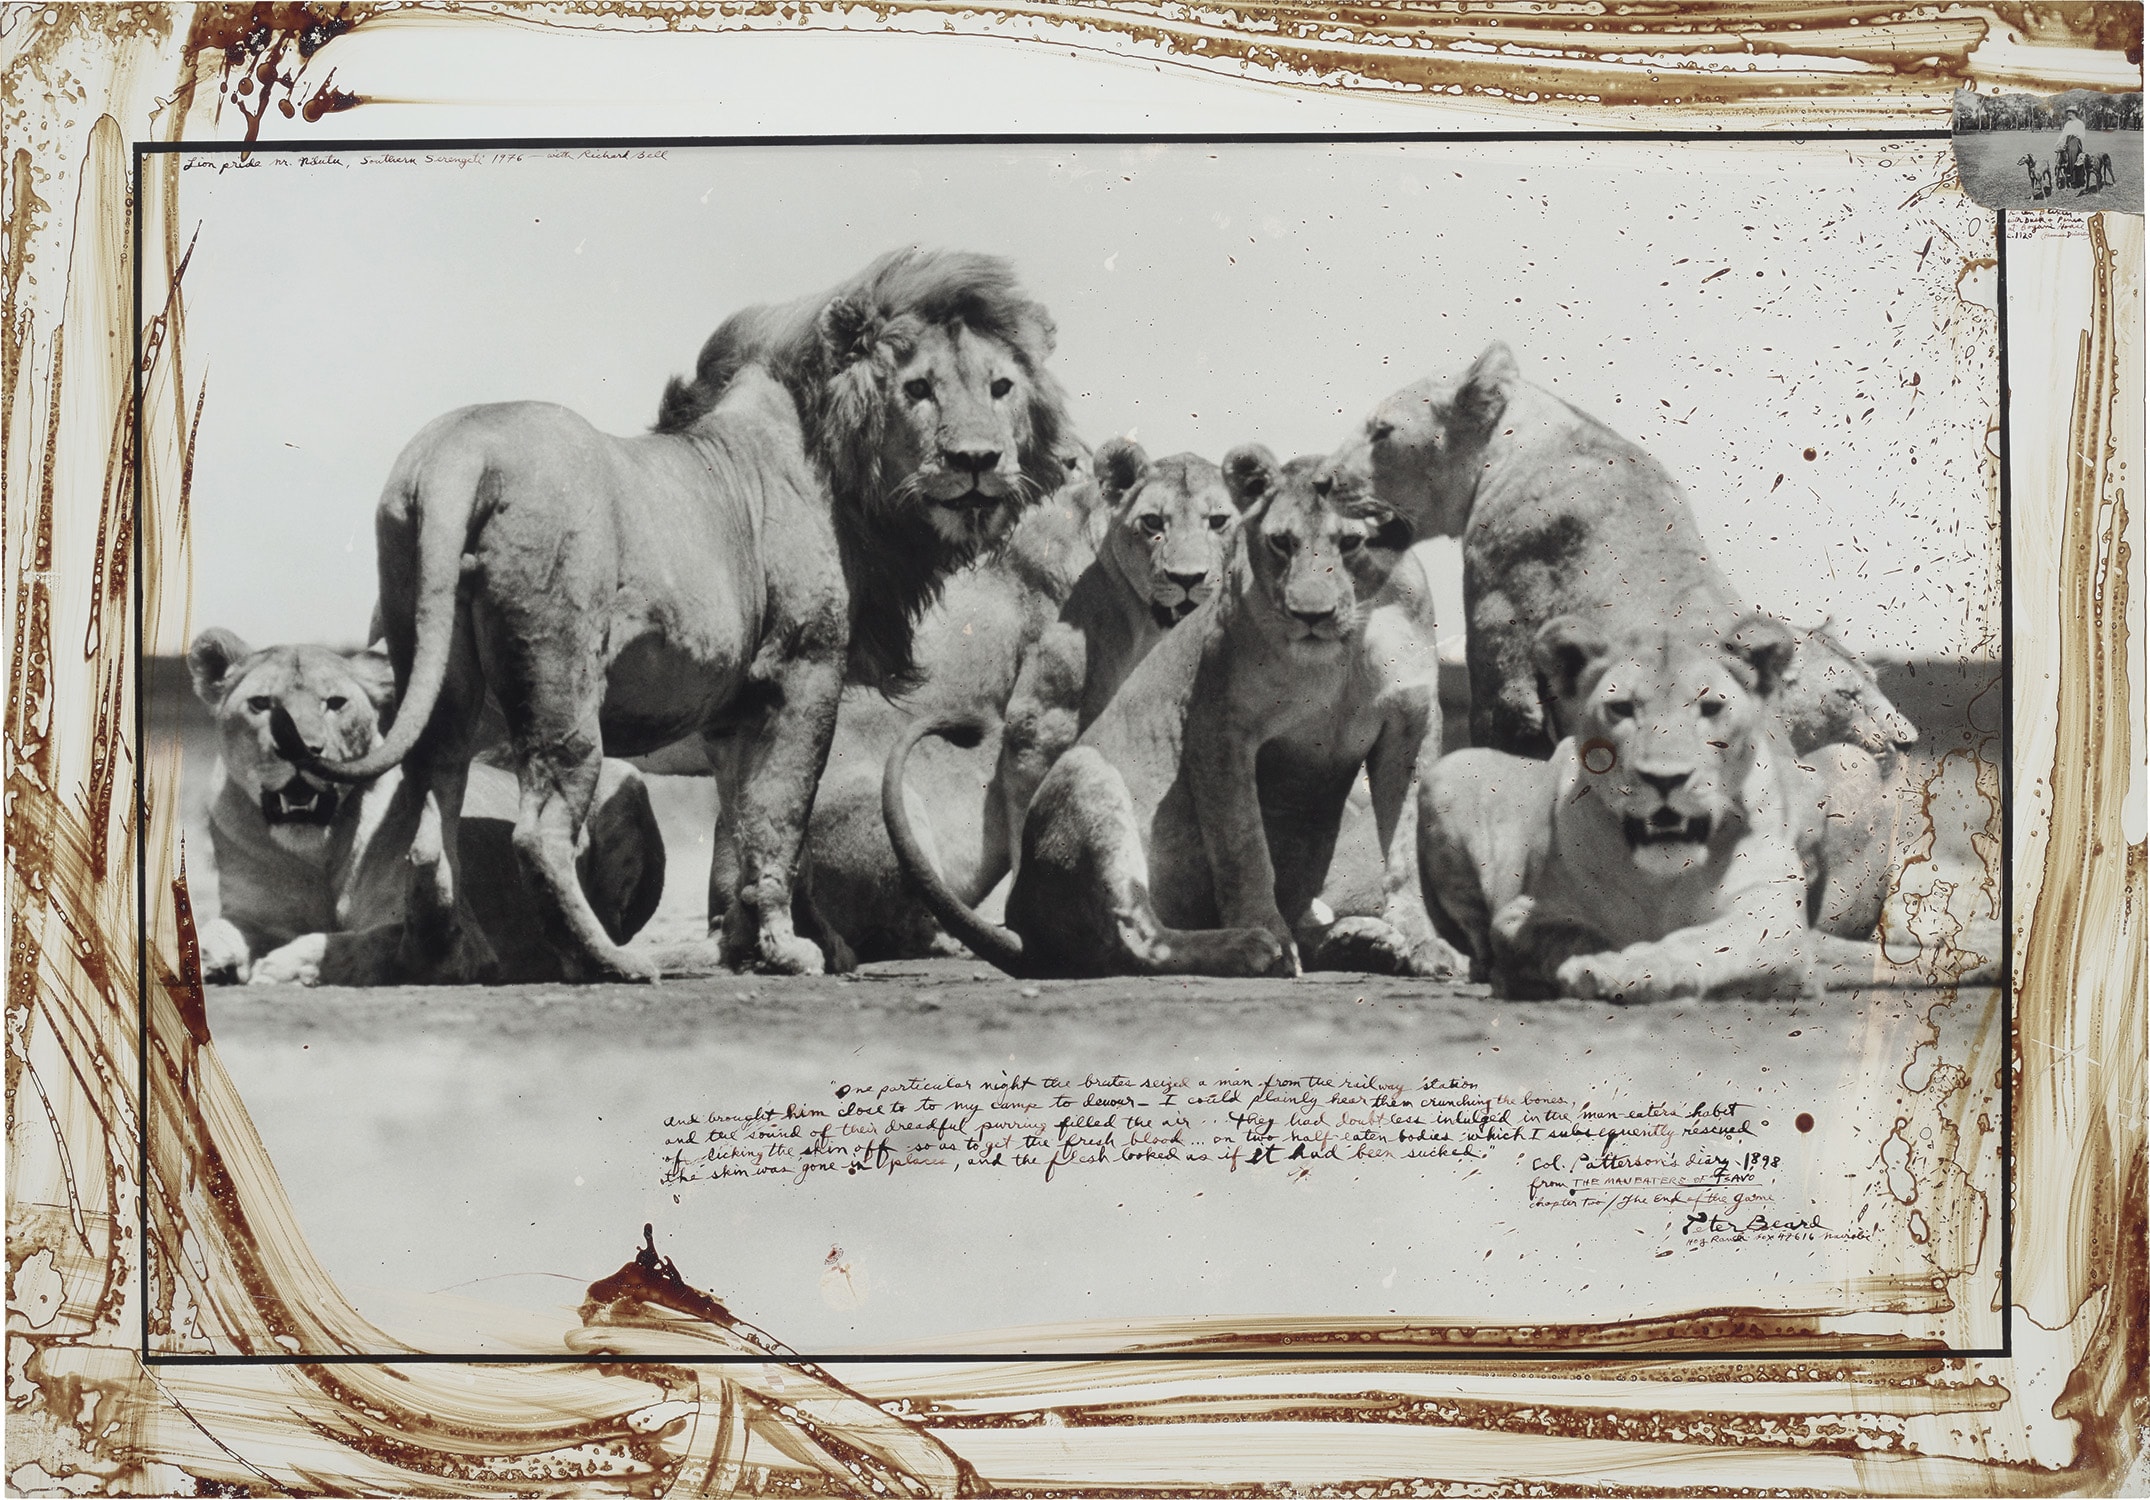 Lion pride nr. Ndutu, Southern Serengeti 1976 — with Richard Bell
Karen Blixen
with Dusk + Pania
at Bogani House
"One particular night the brutes seized a man from the railway station
and brought him close to to my camp to devour — I could plainly hear them crunching the bones,
and the sound of their dreadful purring filled the air ... They had doubtless indulged in the man-eaters habit
of licking the skin off so as to get the fresh blood ... on two half-eaten bodies which I subsequently rescued
the skin was gone in places, and the flesh looked as if it had been sucked."
Col. Patterson's diary 1898
from THE MANEATERS OF TSAVO
chapter two / The End of the Game
Peter Beard
Hog Ranch Box 47616 Nairobi